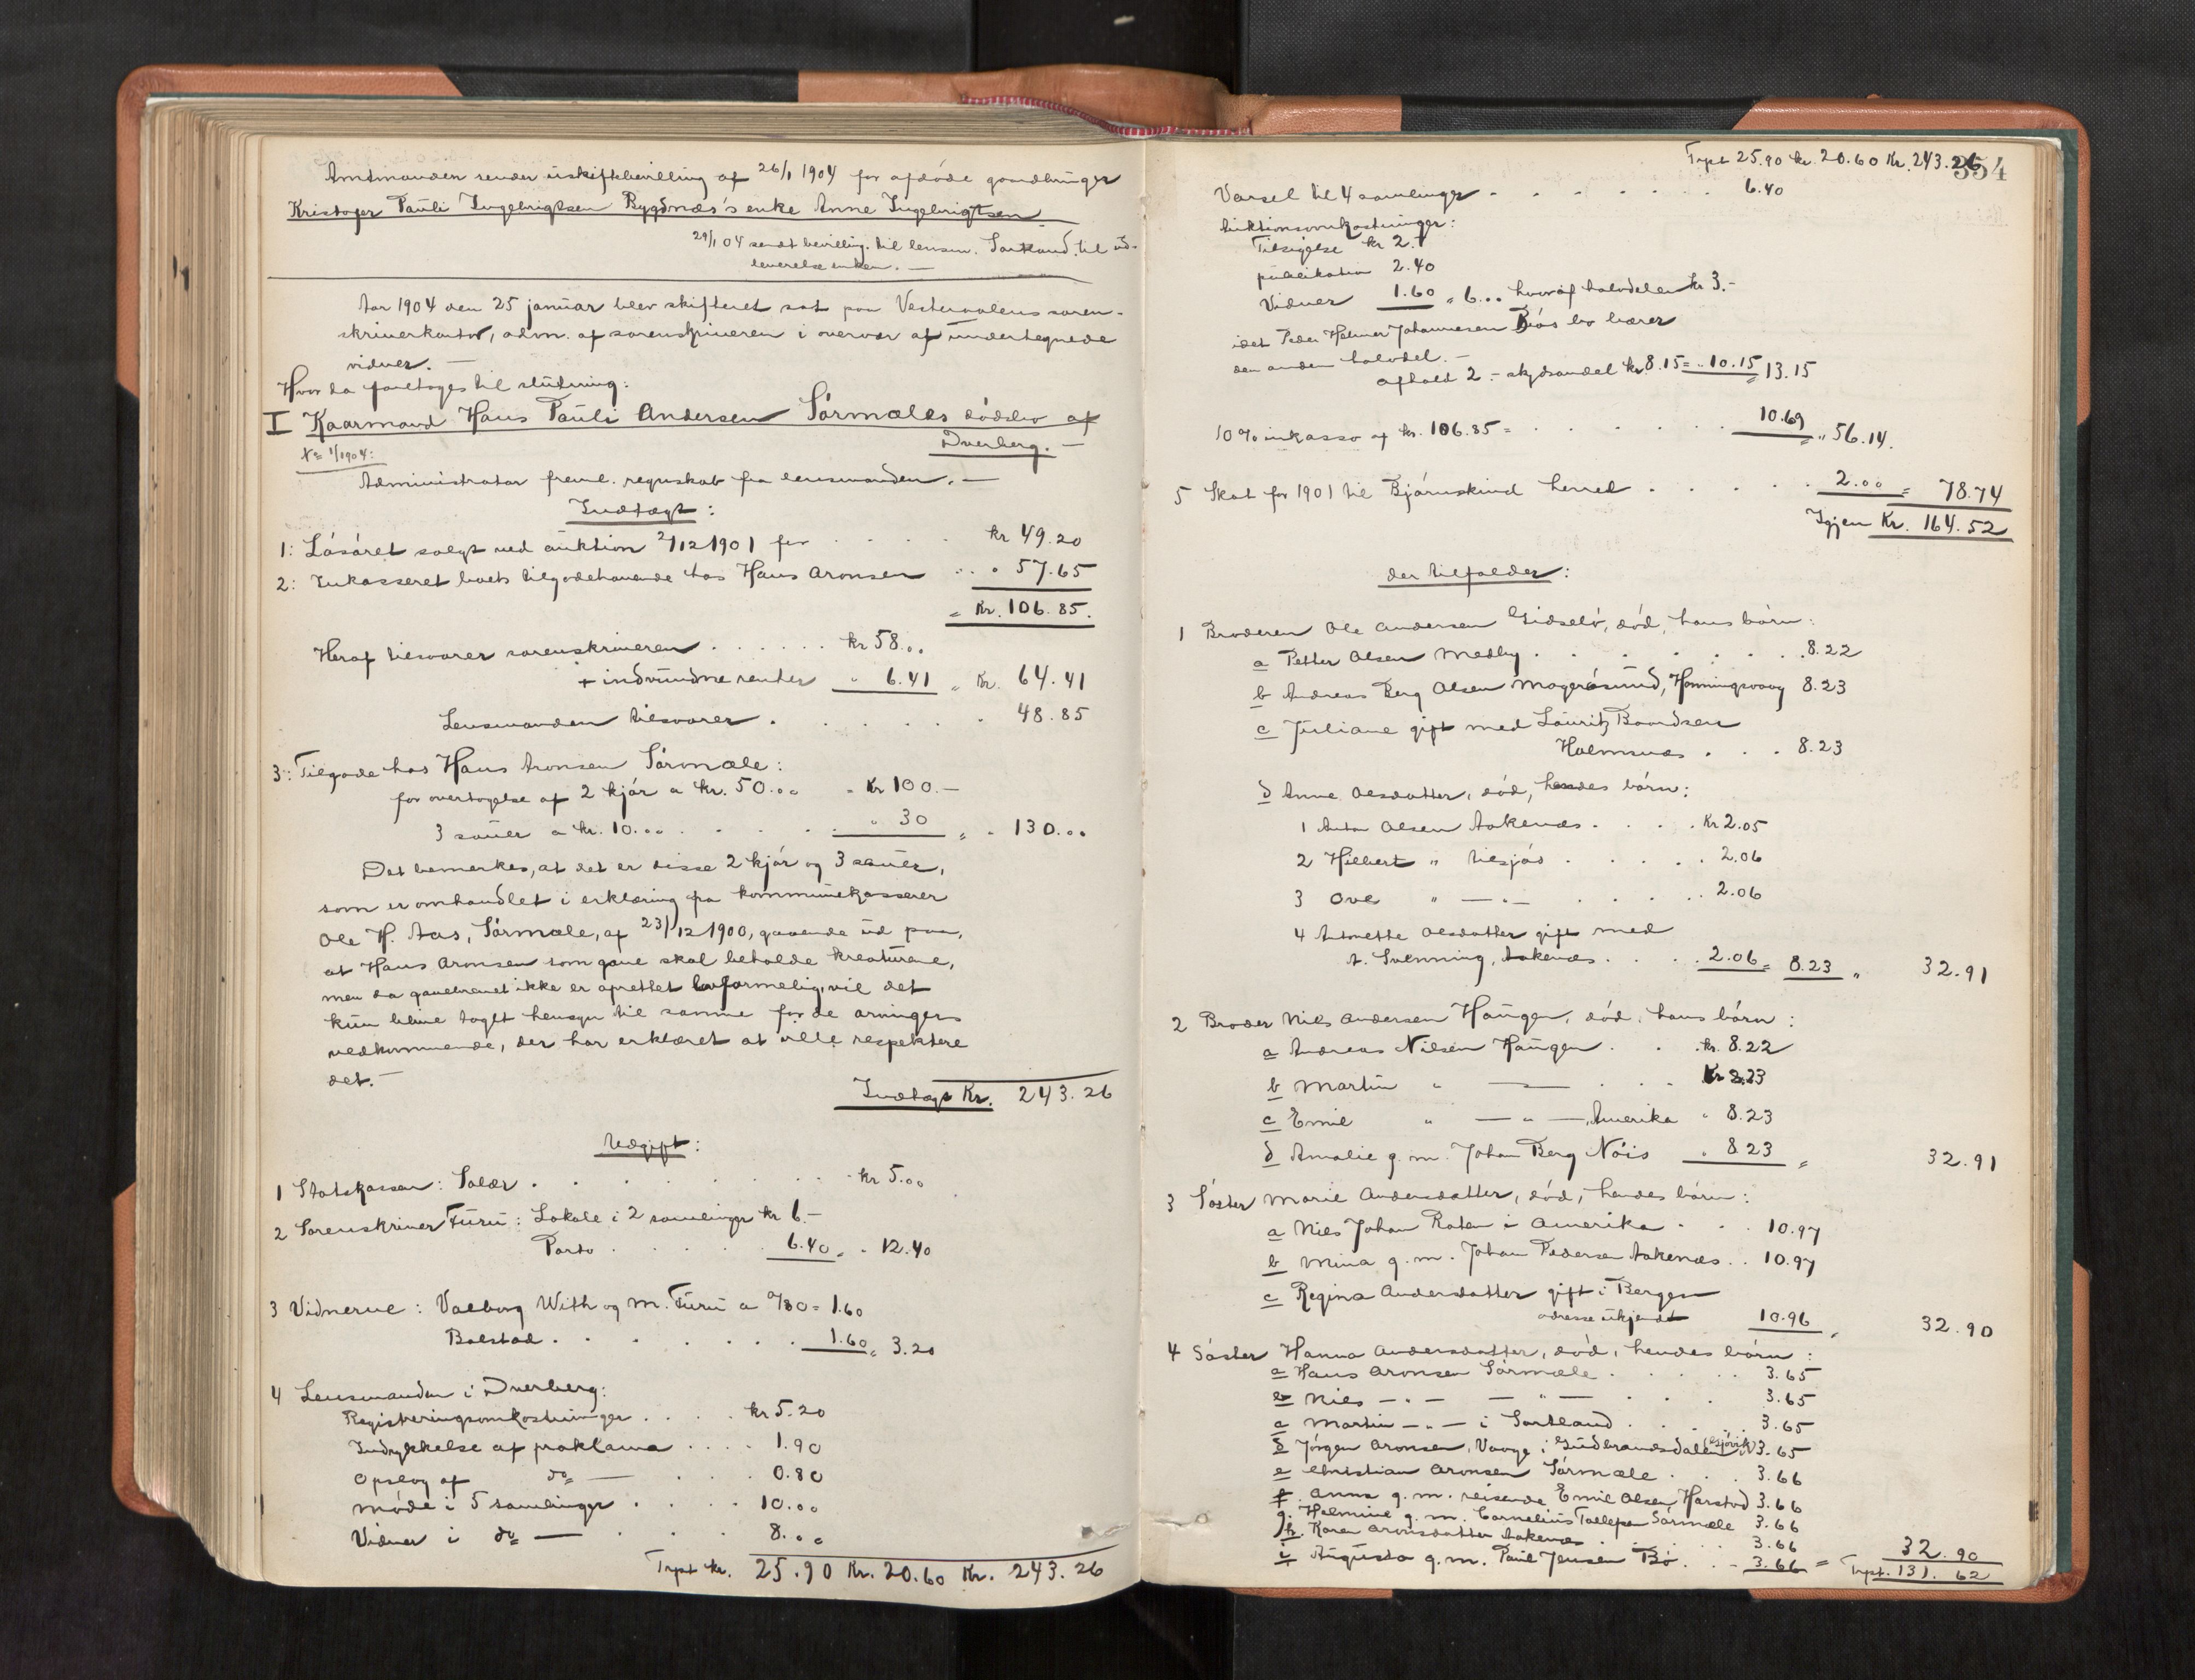 Amtmanden sender uskiftebevilling af 26/1 1904 for afdöde gaardbruger
Kristofer Pauli Ingebrigtsen Bygdnæs's enke Anne Ingebrigtsen
29/1 04 sendt bevilling til lensm. Sortland til ud-
leverelse enken. —
Aar 1904 den 25 januar blev skifteret sat paa Vesteraalens soren-
skriverkontor, adm. af sorenskriveren i overvær af undertegnede
vidner. —
Hvor da foretoges til slutning:
I Kaarmand Hans Pauli Andersen Sörmæles dödsbo af
Dverberg. —
1/1904:
Administrator freml. regnskab fra lensmanden. —
Indtægt:
1: Lösöret solgt ved auktion 2/12 1901 for . . . . kr 49.20
2: Inkasseret boets tilgodehavende hos Hans Aronsen . . " 57.65
= Kr. 106.85.
Heraf tilsvarer sorenskriveren . . . . . . kr 58...
+ indvundne renter " 6.41 = Kr. 64.41
Lensmanden tilsvarer . . . . . . . 48.85
3: Tilgode hos Hans Aronsen Sörmæle:
for overtagelse af 2 kjör a kr. 50.00 = Kr 100.—
3 sauer a kr. 10.00 . . . . . " 30 = " 130.00
Det bemerkes, at det er disse 2 kjör og 3 sauer,
som er omhandlet i erklæring fra kommunekasserer
Ole H. Aas, Sörmæle, af 23/12 1900, gaaende ud paa,
at Hans Aronsen som gave skal beholde kreaturene,
men da gavebrevet ikke er oprettet lovformelig, vil det
kun blive tagt hensyn til samme for de arvingers
vedkommende, der har erklæret at ville respektere
det. —
Indtægt Kr. 243.26
Udgift:
1 Statskassen: Salær . . . . . . . . . kr 5.00
2 Sorenskriver Furu: Lokale i 2 samlinger kr 6.—
Porto . . . . . 6.40 = " 12.40
3 Vidnerne: Valborg With og M. Furu a 0/80 = 1.60
Bolstad . . . . . . . 1.60 = 3.20
4 Lensmanden i Dverberg:
Registreringsomkostninger . . . . kr 5.20
Indrykkelse af proklama . . . . 1.90
Opslag af do — . . . 0.80
Möde i 5 samlinger . . . . 10.00
Vidner i do — . . . 8.00
Trpt kr. 25.90 Kr. 20.60 Kr. 243.26
354
Trpt 25.90 kr. 20.60 Kr. 243.26
Varsel til 4 samlinger . . . . . . . 6.40
Auktionsomkostninger:
Tilsigelse kr 2.-
publikation 2.40
Vidner 1.60 = 6... hvoraf halvdelen kr 3.-
idet Peder Helmer Johannesen bo bærer
den anden halvdel. —
afhold 2.- skydsandel kr 8.15 = " 10.15 = 13.15
10% inkasso af kr. 106.85 = . . . . . . 10.69 = " 56.14.
5 Skat for 1901 til Bjørnskind herred . . . . . 2.00 = 78.74
Igjen Kr. 164.52
der tilfalder:
1 Broderen Ole Andersen Gidselö, död, hans börn:
a Petter Olsen Medby . . . . . . . . 8.22
b Andreas Berg Olsen Magerösund, Honningsvaag 8.23
c Juliane gift med Lauritz Baardsen
Holmsnæs . . . 8.23
d Anne Olsdatter, död, hendes börn:
1 Anton Olsen Aaknæs . . . . Kr 2.05
2 Hilbert " tilsjös . . . . . 2.06
3 Ove " — " — . . . . . 2.06
4 Antonette Olsdatter gift med
A. Svenning, Aaknæs . . . . 2.06 = 8.23 " 32.91
2 Broder Nils Andersen Haugen, död, hans börn:
a Andreas Nilsen Haugen . . kr. 8.22
b Martin " — . . . Kr 8.23
c Emil " — " — , Amerika " 8.23
d Amalie g. m. Johan Berg Nöis " 8.23 = 32.91
3 Söster Marie Andersdatter, död, hendes börn:
a Nils Johan Roten i Amerika . . . 10.97
b Mina g. m. Johan Pedersen Aaknæs . . 10.97
c Regina Andersdatter gift i Bergen
adresse ukjendt 10.96 " 32.90
4 Söster Hanna Andersdatter, död, hendes börn:
a Hans Aronsen Sörmæle . . . . . 3.65
b Nils — " — — " — . . . 3.65
c Martin — " — i Sortland . . . . 3.65
d Jörgen Aronsen, Vaage i Gudbrandsdalen (Gjövik) 3.65
e Christian Aronsen Sörmæle . . . 3.66
f. Anna g. m. reisende Emil Olsen, Harstad 3.66
g. Helmine g. m. Cornelius Tollefsen Sörmæle 3.66
h. Karen Aronsdatter Aaknæs . . . . 3.66
i Augusta g. m. Paul Jensen Bö . . - 3.66 = 32.90
Trpt. 131.62